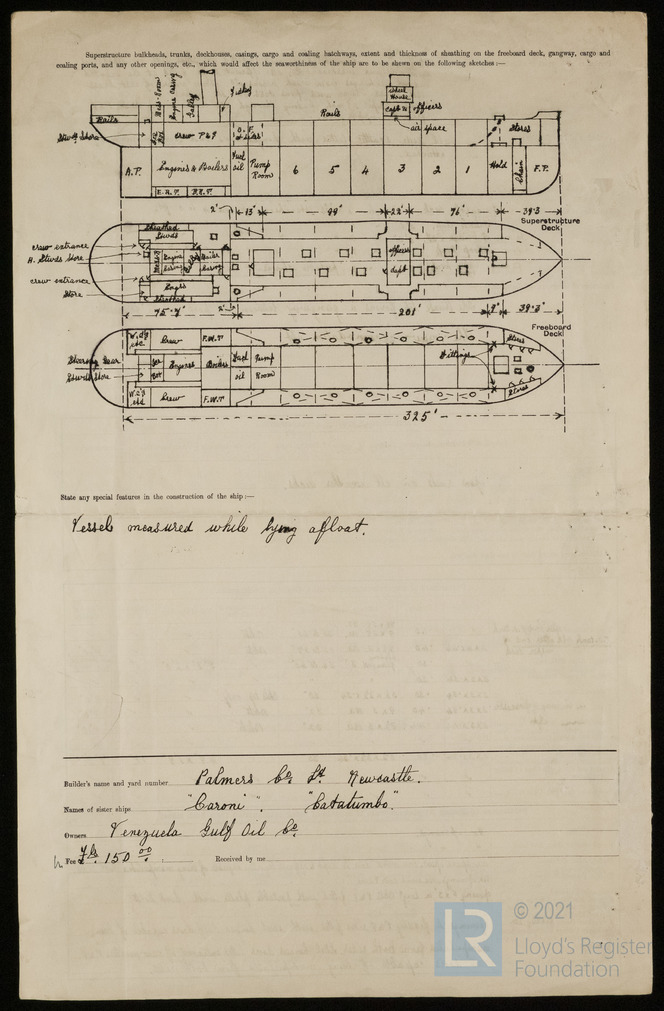 Superstructure bulkheads, trunks, deckhouses, casings, cargo and coaling hatchways, extent and thickness of sheathing on the freeboard deck, gangway, cargo and
coaling ports, and any other openings, etc., which would affect the seaworthiness of the ship are to be shewn on the following sketches:—
Mess Room
Engine Casing
Galley
Wheel
House
Capt &
officers
air space
Rails
Rails
Stores
Crew P&S
A.P.
Engines & Boilers
Fuel
oil
Pump
Room
6
5
4
3
2
1
Hold
Chain
F.P.
2'
13'
99'
22'
76'
39·3
Superstructure
Deck
Sheathed
crew entrance
Engine
Casing
Boiler
Casing
officers
capt.
crew entrance
Store
Engrs
Sheathed
75·9'
2'
201'
9'
39·3'
Freeboard
Deck
Crew
F.W.T
Stores
Steering Gear
Engines
Boilers
Fuel
oil
Pump
Room
Crew
F.W.T
Stores
325'
State any special features in the construction of the ship:—
Vessel measured while lying afloat.
Builder's name and yard number Palmers Co. Ld. Newcastle.
Names of sister ships "Caroni". "Catatumbo".
Owners Venezuela Gulf Oil Co.
Fee 150 00
Received by me
LR
© 2021
Lloyd's Register
Foundation